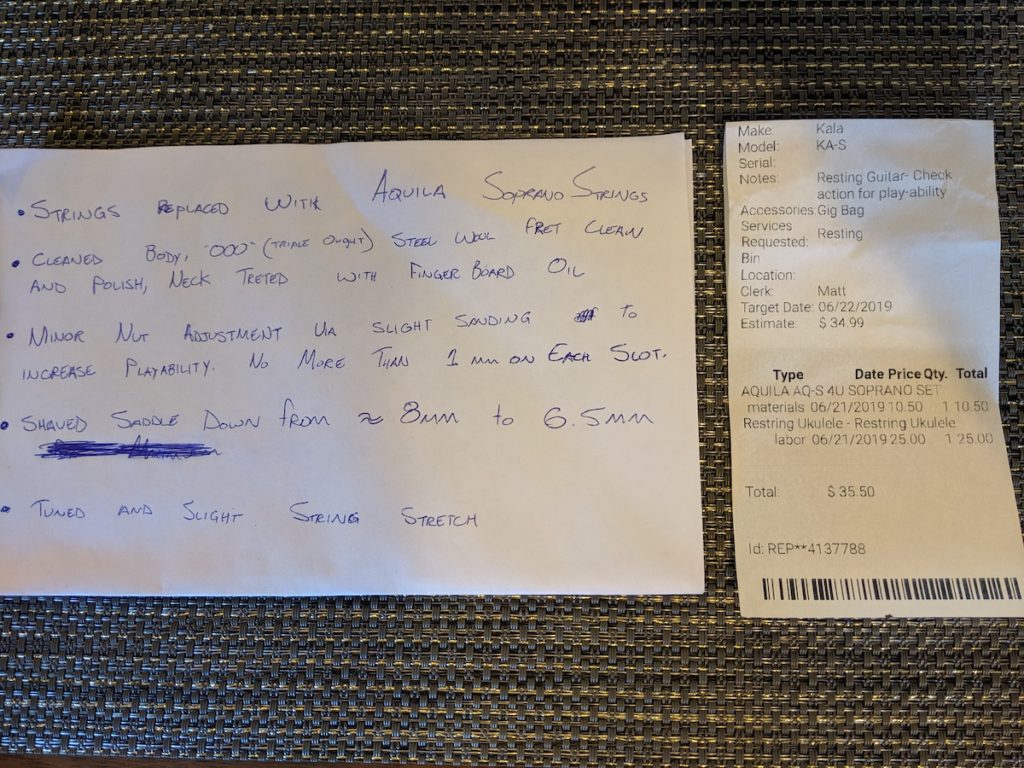 • STRINGS REPLACED WITH AQUILA SOPRANO STRINGS
• CLEANED BODY, "000" (TRIPLE OUGHT) STEEL WOOL FRET CLEAN
AND POLISH, NECK TRETED WITH FINGER BOARD OIL
• MINOR NUT ADJUSTMENT VIA SLIGHT SANDING TO
INCREASE PLAYABILITY. NO MORE THAN 1 MM ON EACH SLOT.
• SHAVED SADDLE DOWN FROM ≈ 8MM to 6.5MM
• TUNED AND SLIGHT STRING STRETCH
Make: Kala
Model: KA-S
Serial:
Notes: Resting Guitar- Check
action for play-ability
Accessories: Gig Bag
Services
Requested: Resting
Bin
Location:
Clerk: Matt
Target Date: 06/22/2019
Estimate: $ 34.99
Type Date Price Qty. Total
AQUILA AQ-S 4U SOPRANO SET
materials 06/21/2019 10.50 1 10.50
Restring Ukulele - Restring Ukulele
labor 06/21/2019 25.00 1 25.00
Total: $ 35.50
Id: REP**4137788